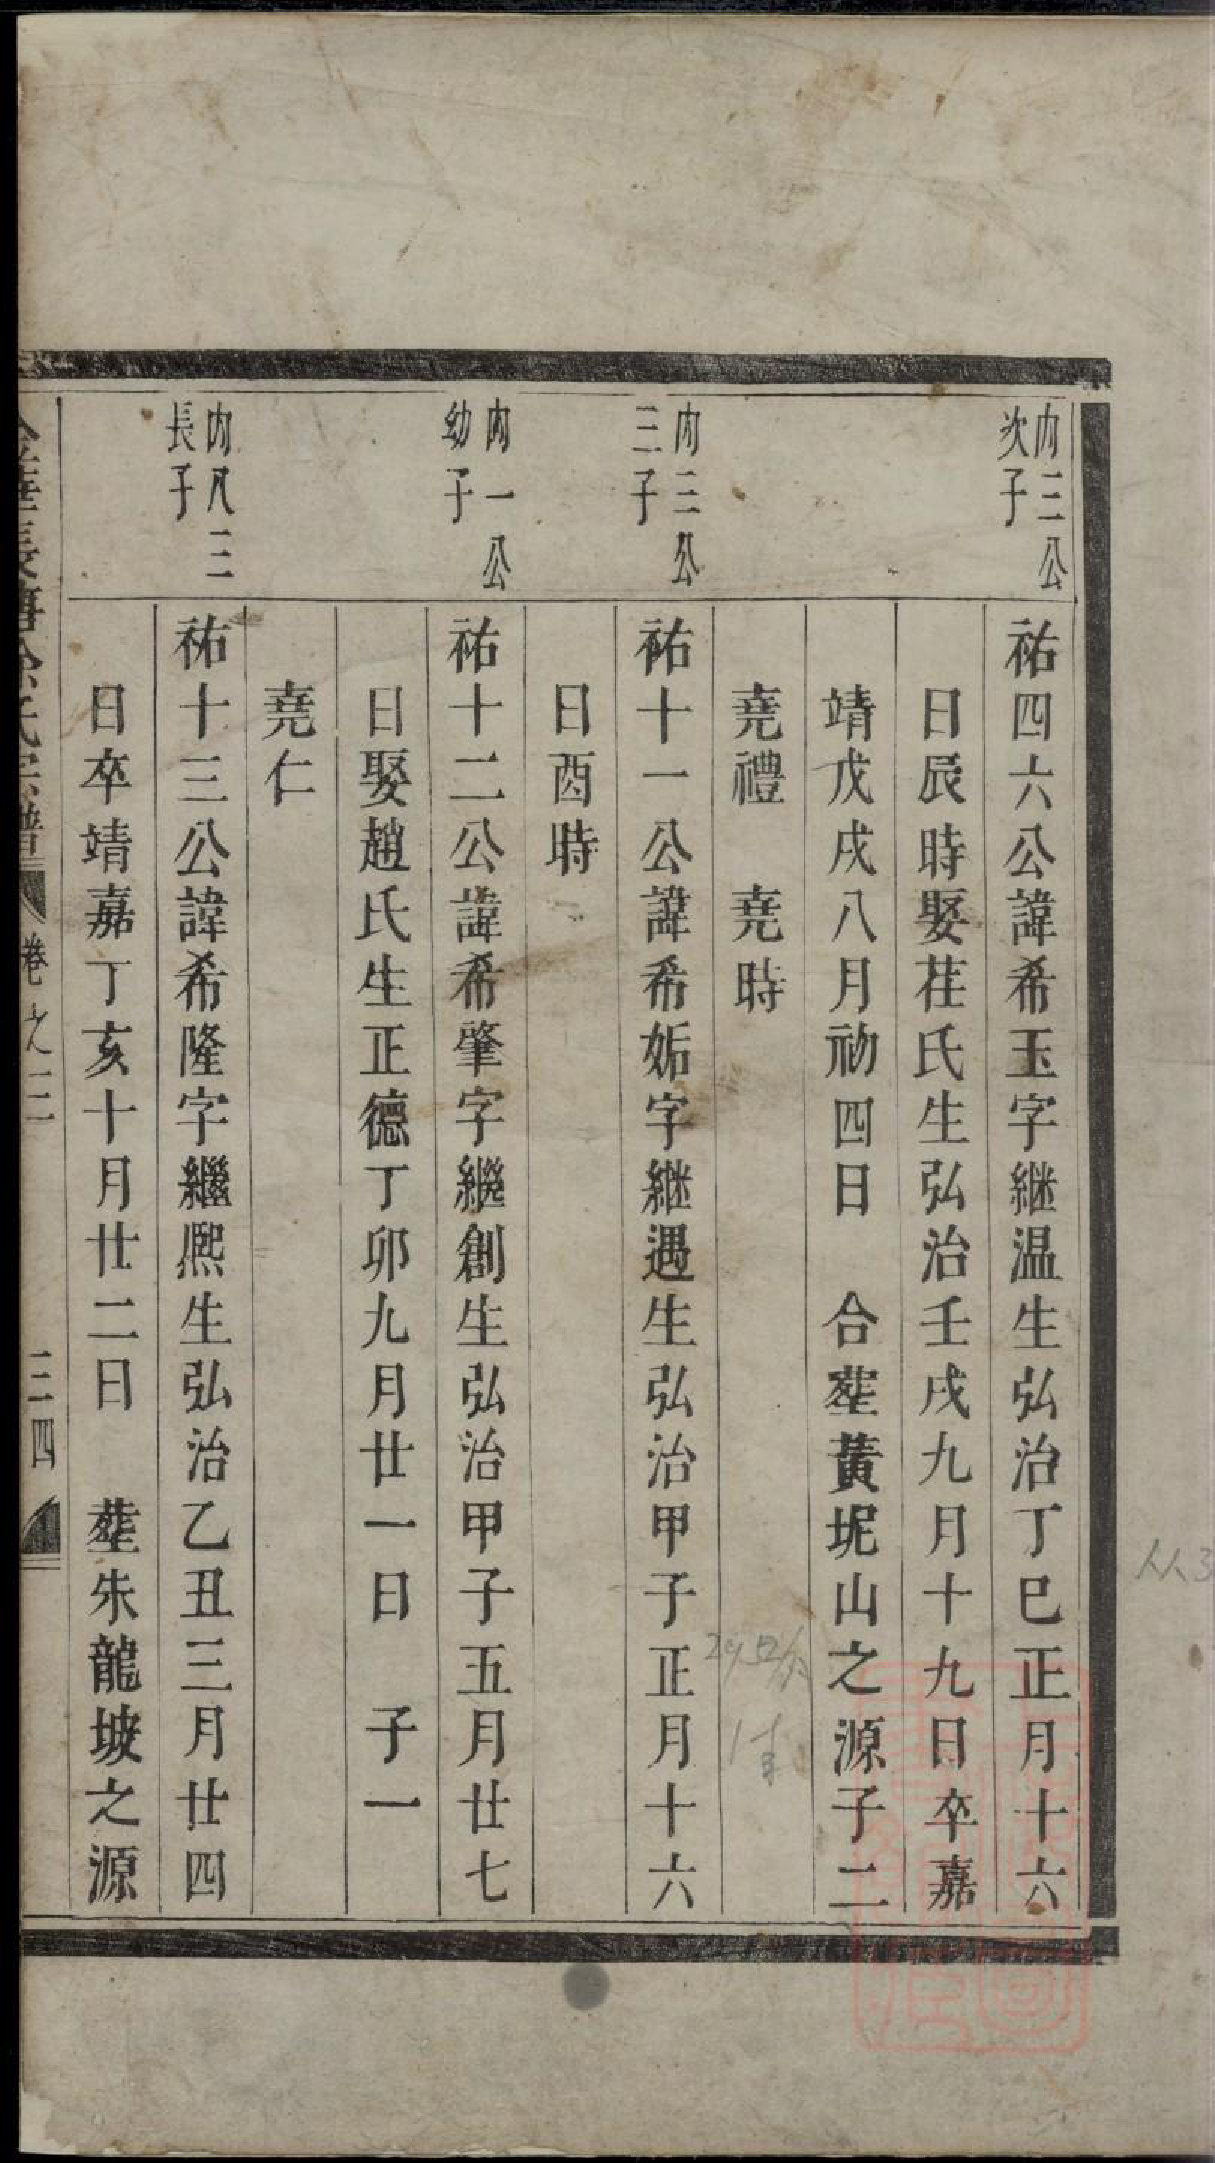 内三公
次子
祐四六公諱希玉字継温生弘治丁巳正月十六
日辰時娶荘氏生弘治壬戌九月十九日卒嘉
靖戊戌八月初四日 合塟黃坭山之源子二
堯禮 堯時
内三公
三子
祐十一公諱希妬字継遇生弘治甲子正月十六
日酉時
内一公
幼子
祐十二公諱希肇字繼創生弘治甲子五月廿七
日娶趙氏生正德丁卯九月廿一日 子一
堯仁
内八三
長子
祐十三公諱希隆字繼熈生弘治乙丑三月廿四
日卒靖嘉丁亥十月廿二日 塟朱龍坡之源
氏宗譜
卷之二
三四